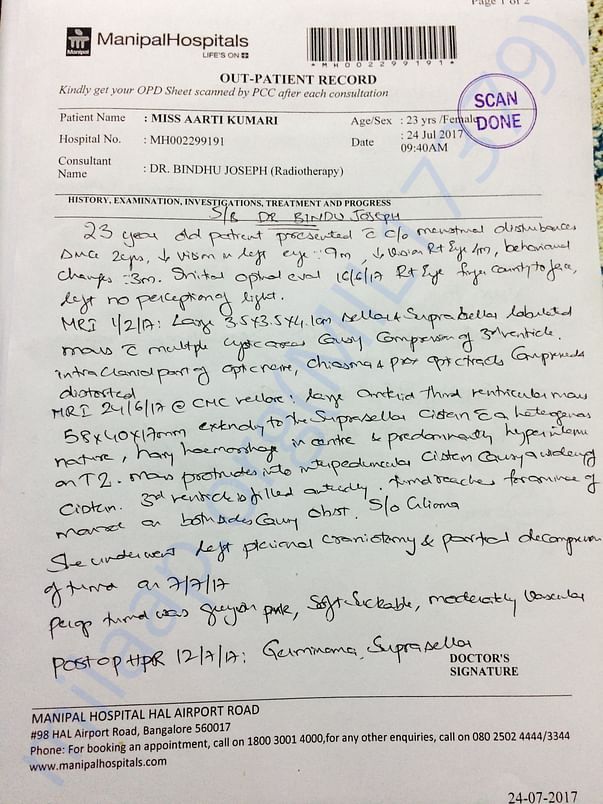 Page 1 of 2
Manipal
ManipalHospitals
LIFE'S ON
*MH002299191*
OUT-PATIENT RECORD
Kindly get your OPD Sheet scanned by PCC after each consultation
SCAN DONE
Patient Name : MISS AARTI KUMARI Age/Sex : 23 yrs /Female
Hospital No. : MH002299191 Date : 24 Jul 2017 09:40AM
Consultant Name : DR. BINDHU JOSEPH (Radiotherapy)
HISTORY, EXAMINATION, INVESTIGATIONS, TREATMENT AND PROGRESS
S/B DR BINDU JOSEPH
23 year old patient presented c̄ c/o menstrual disturbances
since 2yrs, ↓ vision in left eye : 9m, ↓ vision Rt Eye 4m, behavioural
changes : 3m. Initial opthal eval 16/6/17 Rt Eye finger counting to face,
left no perception of light.
MRI 1/2/17: Large 3.5x3.5x4.1cm sellar & Suprasellar lobulated
mass c̄ multiple cystic areas causing compression of 3rd ventricle.
intracranial part of optic nerve, chiasma & prox optic tracts compressed
distorted
MRI 24/6/17 @ CMC vellore: large third ventricular mass
58x40x17mm extending to the Suprasellar Cistern c̄ a heterogenous
nature, haemorrhage in centre & predominantly hyperintense
on T2. Mass protrudes into interpeduncular Cistern causing widening of
Cistern. 3rd ventricle is filled entirely, tumor reaches foramina of
monro on both sides causing obst. S/o Glioma
She underwent left pterional craniotomy & partial decompression
of tumor on 7/7/17
tumor was greyish pink, Soft Suckable, moderately vascular
post op HPR 12/7/17: Germinoma, Suprasellar
DOCTOR'S
SIGNATURE
MANIPAL HOSPITAL HAL AIRPORT ROAD
#98 HAL Airport Road, Bangalore 560017
Phone: For booking an appointment, call on 1800 3001 4000,for any other enquiries, call on 080 2502 4444/3344
www.manipalhospitals.com
24-07-2017